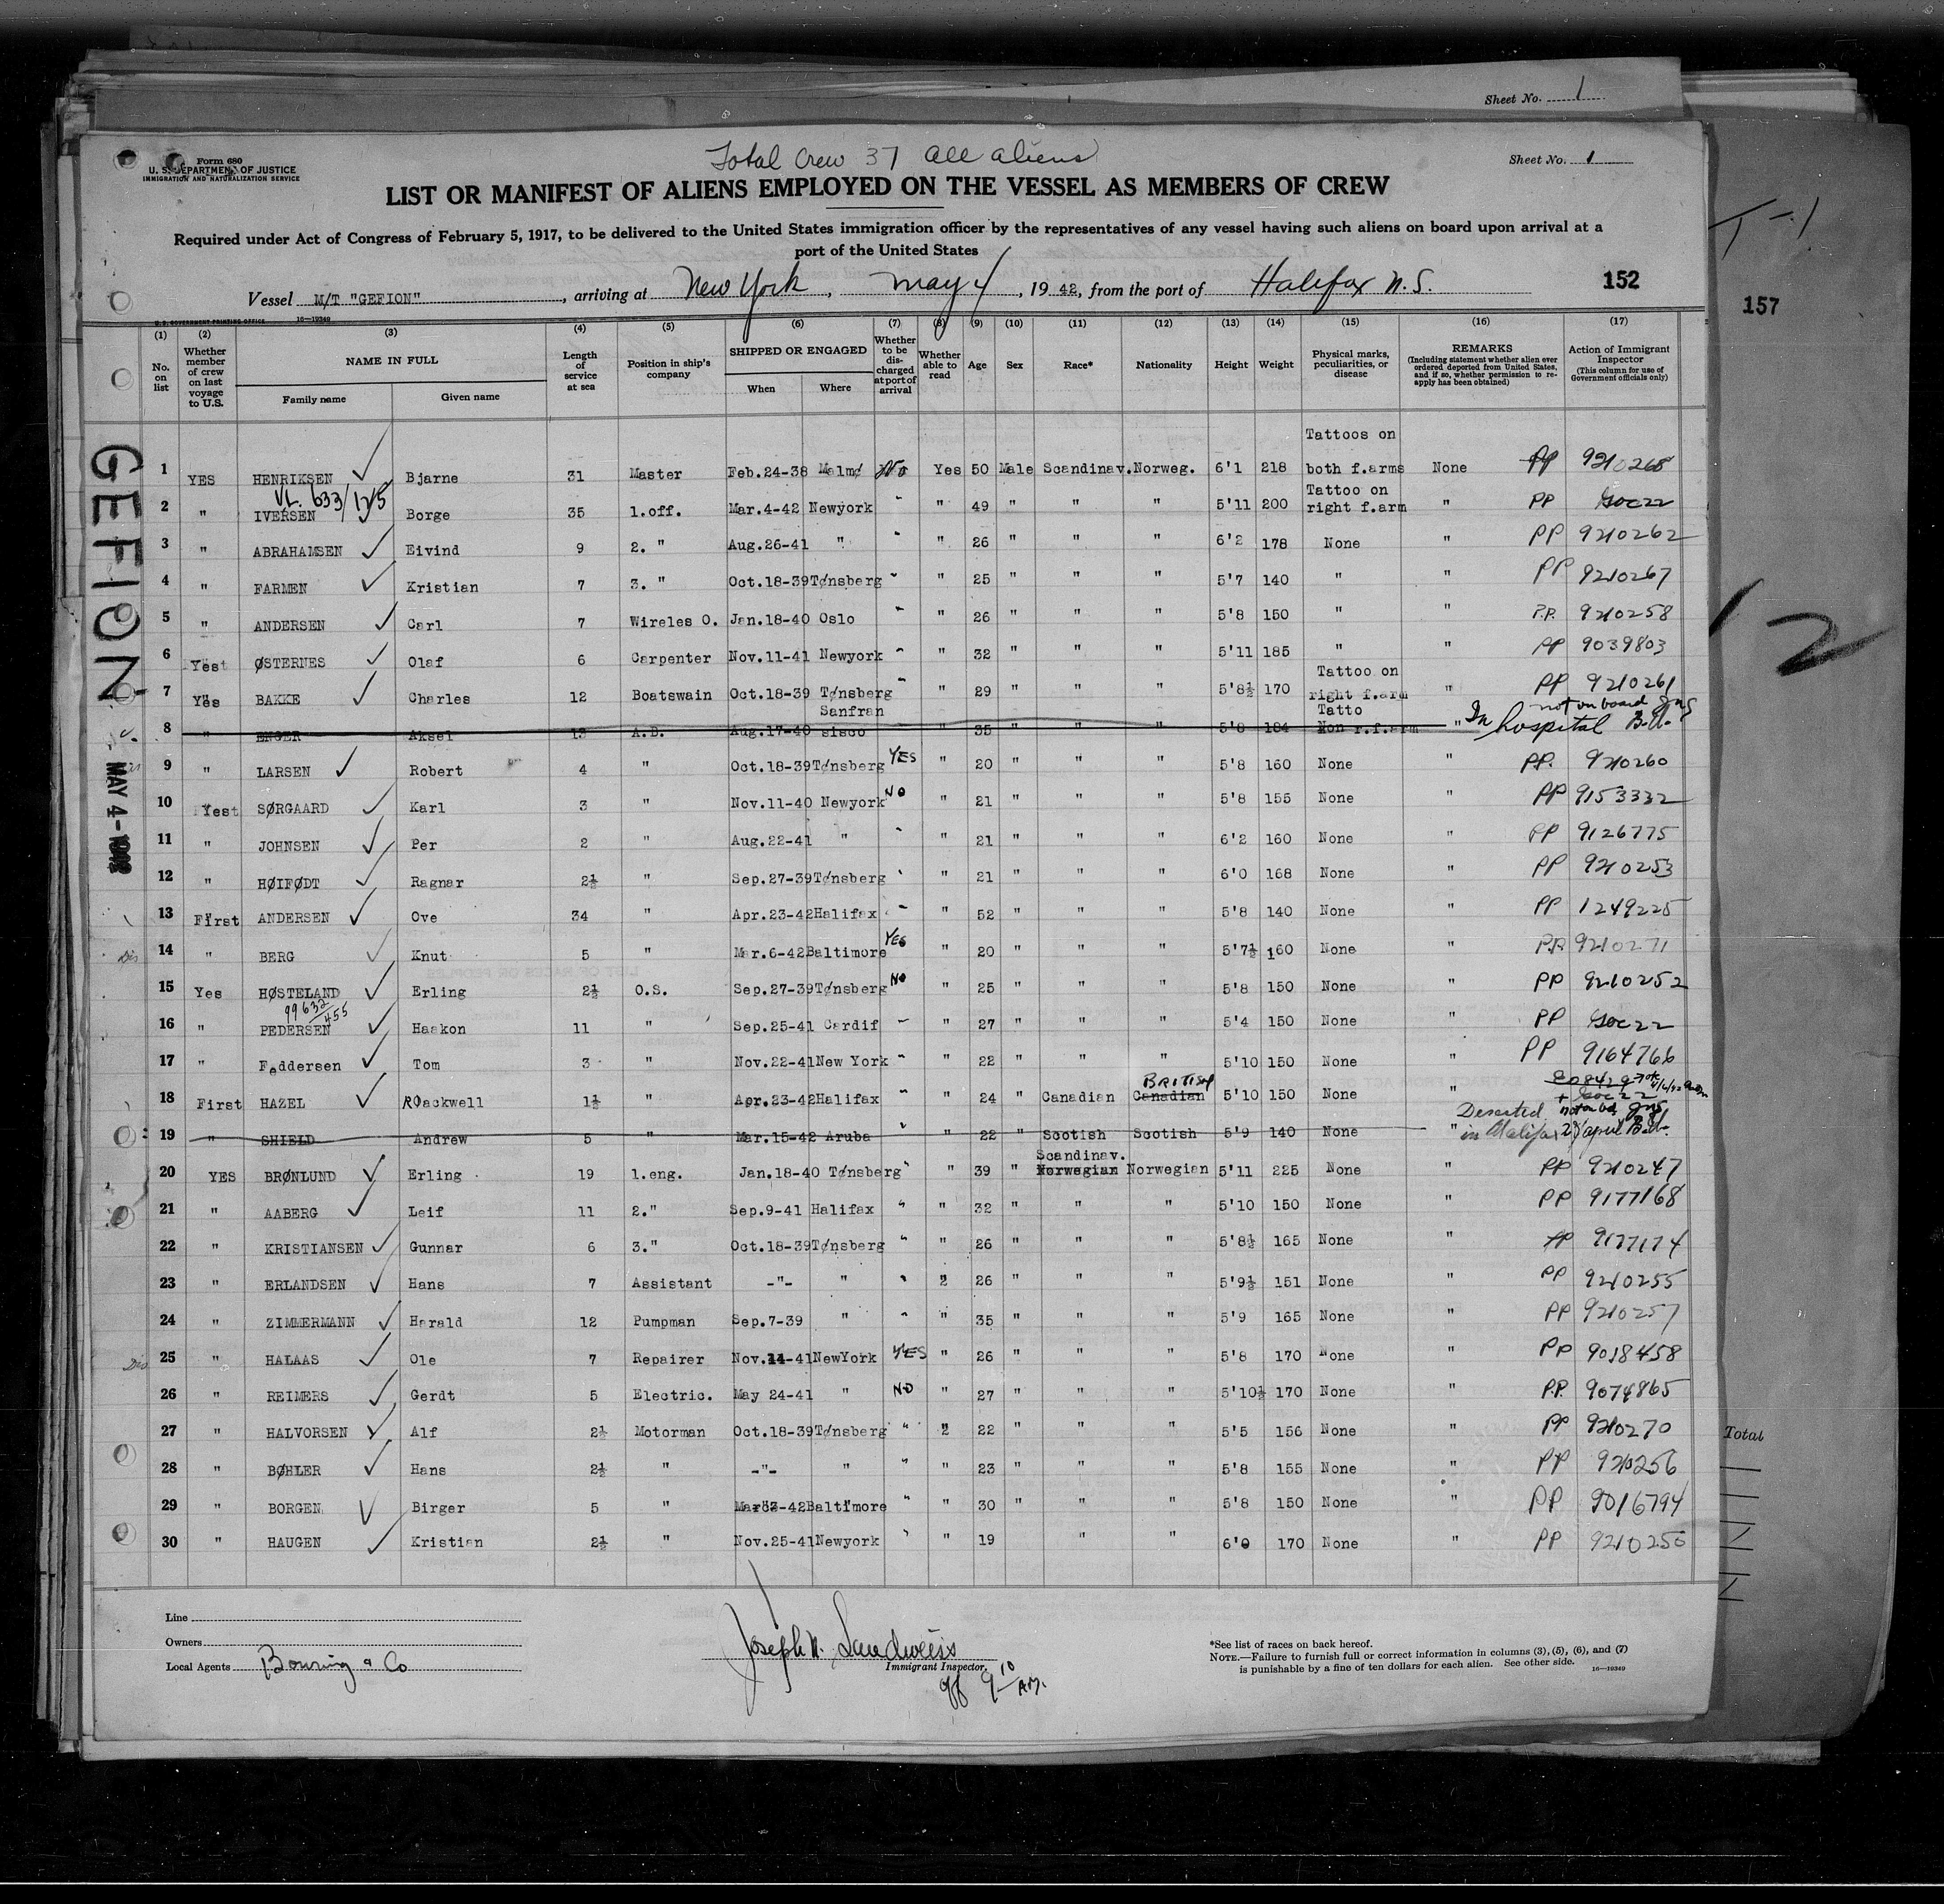 Sheet No. 1
Total Crew 37 all aliens
Form 680
U. S. DEPARTMENT OF JUSTICE
IMMIGRATION AND NATURALIZATION SERVICE
Sheet No. 1
LIST OR MANIFEST OF ALIENS EMPLOYED ON THE VESSEL AS MEMBERS OF CREW
Required under Act of Congress of February 5, 1917, to be delivered to the United States immigration officer by the representatives of any vessel having such aliens on board upon arrival at a
port of the United States
Vessel M/T "GEFION", arriving at New York, May 4, 1942, from the port of Halifax N.S. 152
157
U.S. GOVERNMENT PRINTING OFFICE 16—19349
(1) (2) (3) (4) (5) (6) (7) (8) (9) (10) (11) (12) (13) (14) (15) (16) (17)
No. on list
Whether member of crew on last voyage to U.S.
NAME IN FULL
Family name
Given name
Length of service at sea
Position in ship's company
SHIPPED OR ENGAGED
When
Where
Whether to be discharged at port of arrival
Whether able to read
Age
Sex
Race*
Nationality
Height
Weight
Physical marks, peculiarities, or disease
REMARKS
(Including statement whether alien ever ordered deported from United States, and if so, whether permission to reapply has been obtained)
Action of Immigrant Inspector
(This column for use of Government officials only)
GEFION
MAY 4-1942
1 YES HENRIKSEN Bjarne 31 Master Feb.24-38 Malmø No Yes 50 Male Scandinav. Norweg. 6'1 218 Tattoos on both f.arms None PP 9210268
VL. 633/125
2 " IVERSEN Borge 35 1.off. Mar.4-42 Newyork " " 49 " " " 5'11 200 Tattoo on right f.arm " PP
3 " ABRAHAMSEN Eivind 9 2. " Aug.26-41 " " " 26 " " " 6'2 178 None " PP 9210262
4 " FARMEN Kristian 7 3. " Oct.18-39 Tønsberg " " 25 " " " 5'7 140 " " PP 9210267
5 " ANDERSEN Carl 7 Wireles O. Jan.18-40 Oslo " " 26 " " 5'8 150 " " P.P. 9210258
6 Yes ØSTERNES Olaf 6 Carpenter Nov.11-41 Newyork " " 32 " " " 5'11 185 " " PP 9039803
7 Yes BAKKE Charles 12 Boatswain Oct.18-39 Tønsberg " " 29 " " " 5'8½ 170 Tattoo on right f.arm " PP 9210261
8 " ENGER Aksel 13 A.B. Aug.17-40 Sanfransisco " 35 " " " 5'8 184 Tatto r.f.arm " In hospital not on board
9 " LARSEN Robert 4 " Oct.18-39 Tønsberg YES " 20 " " " 5'8 160 None " PP. 9210260
10 Yes SØRGAARD Karl 3 " Nov.11-40 Newyork NO " 21 " " " 5'8 155 None " PP 9153332
11 " JOHNSEN Per 2 " Aug.22-41 " " " 21 " " " 6'2 160 None " PP 9126775
12 " HØIFØDT Ragnar 2½ " Sep.27-39 Tønsberg " " 21 " " " 6'0 168 None " PP 9210253
13 First ANDERSEN Ove 34 " Apr.23-42 Halifax " " 52 " " " 5'8 140 None " PP 1249225
14 " BERG Knut 5 " Mar.6-42 Baltimore YES " 20 " " " 5'7½ 160 None " PP 9210271
15 Yes HØSTELAND Erling 2½ O.S. Sep.27-39 Tønsberg NO " 25 " " " 5'8 150 None " PP 9210252
99632/455
16 " PEDERSEN Haakon 11 " Sep.25-41 Cardif " " 27 " " " 5'4 150 None " PP
17 " Feddersen Tom 3 " Nov.22-41 New York " " 22 " " " 5'10 150 None " PP 9164766
18 First HAZEL ROackwell 1½ " Apr.23-42 Halifax " " 24 " Canadian BRITISH Canadian 5'10 150 None "
19 " SHIELD Andrew 5 " Mar.15-42 Aruba " " 22 " Scotish Scotish 5'9 140 None " Deserted in Halifax 23 april
20 YES BRØNLUND Erling 19 1.eng. Jan.18-40 Tønsberg " " 39 " Scandinav. Norwegian Norwegian 5'11 225 None " PP 9210247
21 " AABERG Leif 11 2." Sep.9-41 Halifax " " 32 " " " 5'10 150 None " PP 9177168
22 " KRISTIANSEN Gunnar 6 3." Oct.18-39 Tønsberg " " 26 " " " 5'8½ 165 None " PP 9177174
23 " ERLANDSEN Hans 7 Assistant -"- " " " 26 " " " 5'9½ 151 None " PP 9210255
24 " ZIMMERMANN Harald 12 Pumpman Sep.7-39 " " " 35 " " " 5'9 165 None " PP 9210257
25 " HALAAS Ole 7 Repairer Nov.14-41 NewYork YES " 26 " " " 5'8 170 None " PP 9018458
26 " REIMERS Gerdt 5 Electric. May 24-41 " NO " 27 " " " 5'10½ 170 None " P.P. 9074865
27 " HALVORSEN Alf 2½ Motorman Oct.18-39 Tønsberg " " 22 " " " 5'5 156 None " PP 9210270
28 " BØHLER Hans 2½ " -"- " " " 23 " " " 5'8 155 None " PP 920256
29 " BORGEN Birger 5 " Mar 42 Baltimore " " 30 " " " 5'8 150 None " PP 9016794
30 " HAUGEN Kristian 2½ " Nov.25-41 Newyork " " 19 " " 6'0 170 None " PP 9210250
Total
Line
Owners
Local Agents Bowring & Co
Joseph N. Landweiss
Immigrant Inspector.
9 10 A.M.
*See list of races on back hereof.
NOTE.—Failure to furnish full or correct information in columns (3), (5), (6), and (7)
is punishable by a fine of ten dollars for each alien. See other side. 16—19349